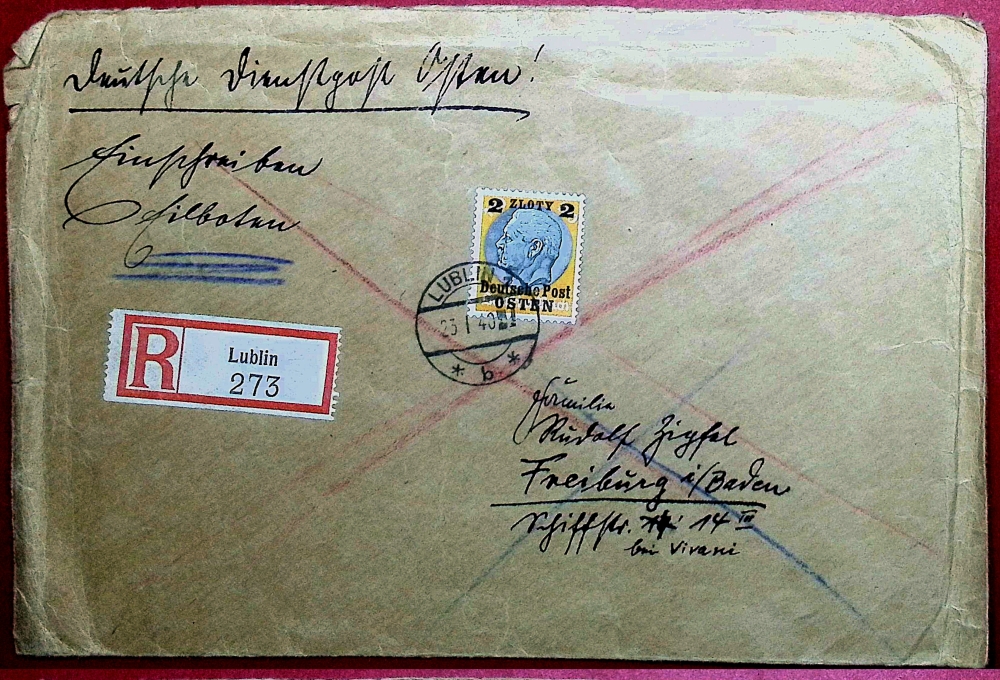 Deutsche Dienstpost Osten!
Einschreiben
Eilboten
2 ZLOTY 2
Deutsche Post
OSTEN
LUBLIN
23 I 40
* q *
R
Lublin
273
Familie
Rudolf Zipfel
Freiburg i/Baden
Schiffstr. 14 III
bei Vivani